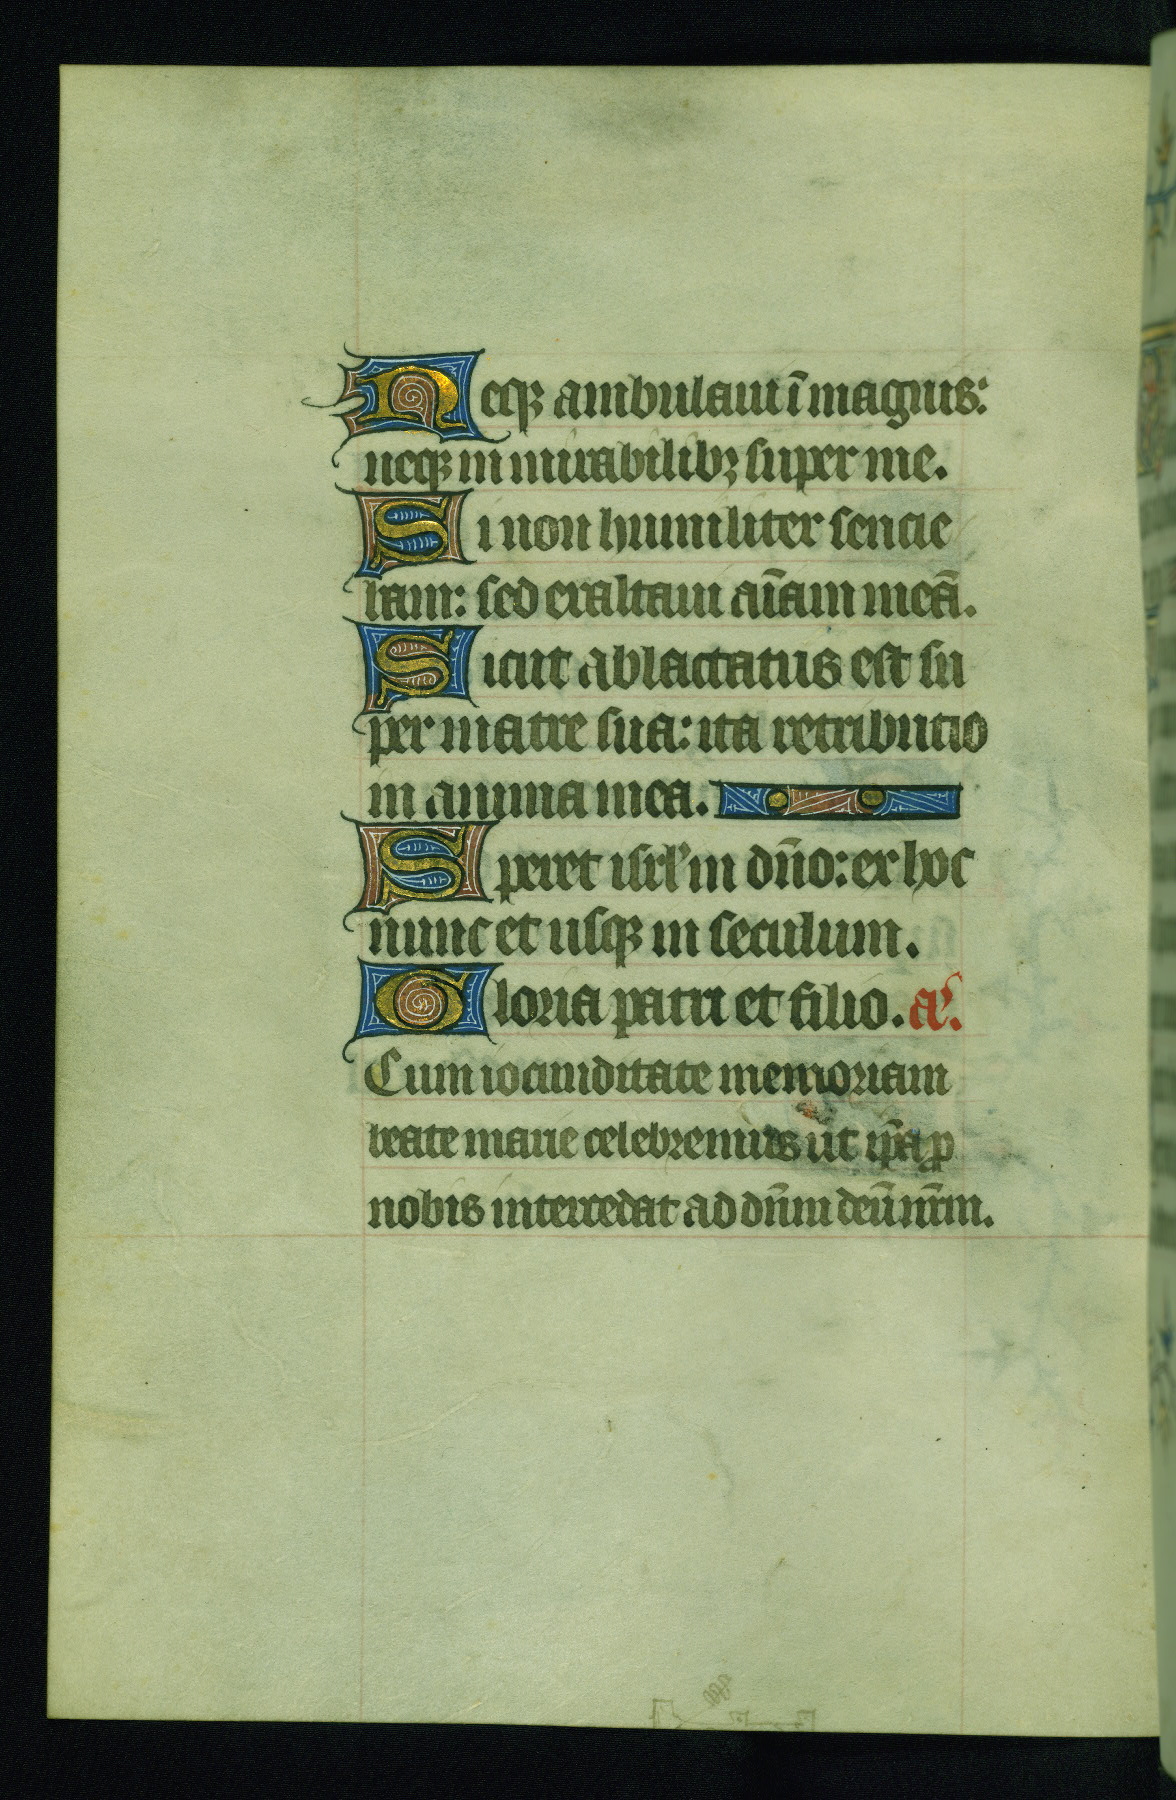 Neq ambulaui ī magnis:
neq in mirabilibꝫ super me.
Si non humiliter sencie
bam: sed exaltaui aīam meā.
Sicut ablactatus est su
per matre sua: ita retributio
in anima mea.
Speret isrl' in dn̄o: ex hoc
nunc et usq in seculum.
Gloria patri et filio. a.
Cum iocunditate memoriam
beate marie celebremus ut ip̄a ꝓ
nobis intercedat ad dn̄m deū nr̄m.